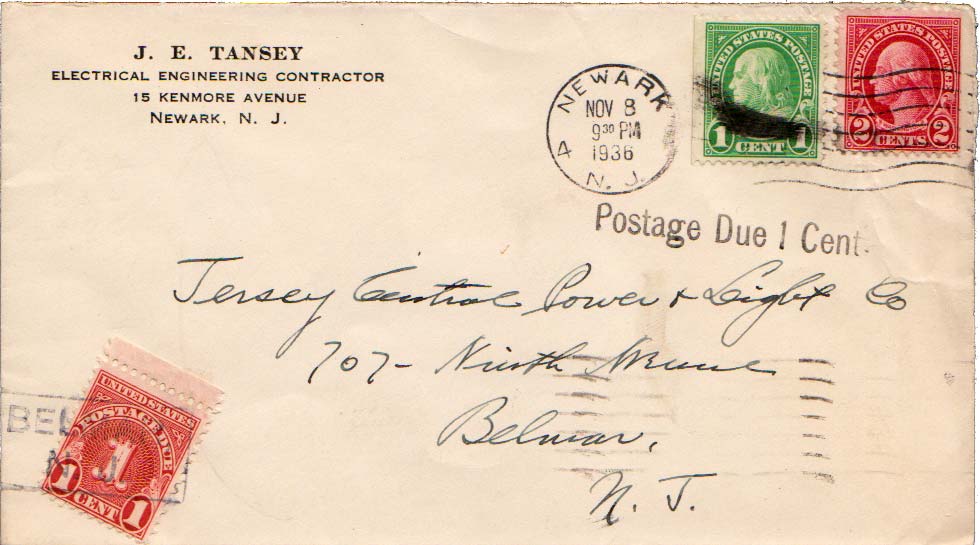 J. E. TANSEY
ELECTRICAL ENGINEERING CONTRACTOR
15 KENMORE AVENUE
NEWARK, N. J.
NEWARK
NOV 8
9 30 PM
1936
N. J.
4
UNITED STATES POSTAGE
1 CENT 1
UNITED STATES POSTAGE
2 CENTS 2
Postage Due 1 Cent
Jersey Central Power & Light Co
707- Ninth Avenue
Belmar,
N. J.
UNITED STATES
POSTAGE DUE
1
1 CENT 1
BEL
N. J.